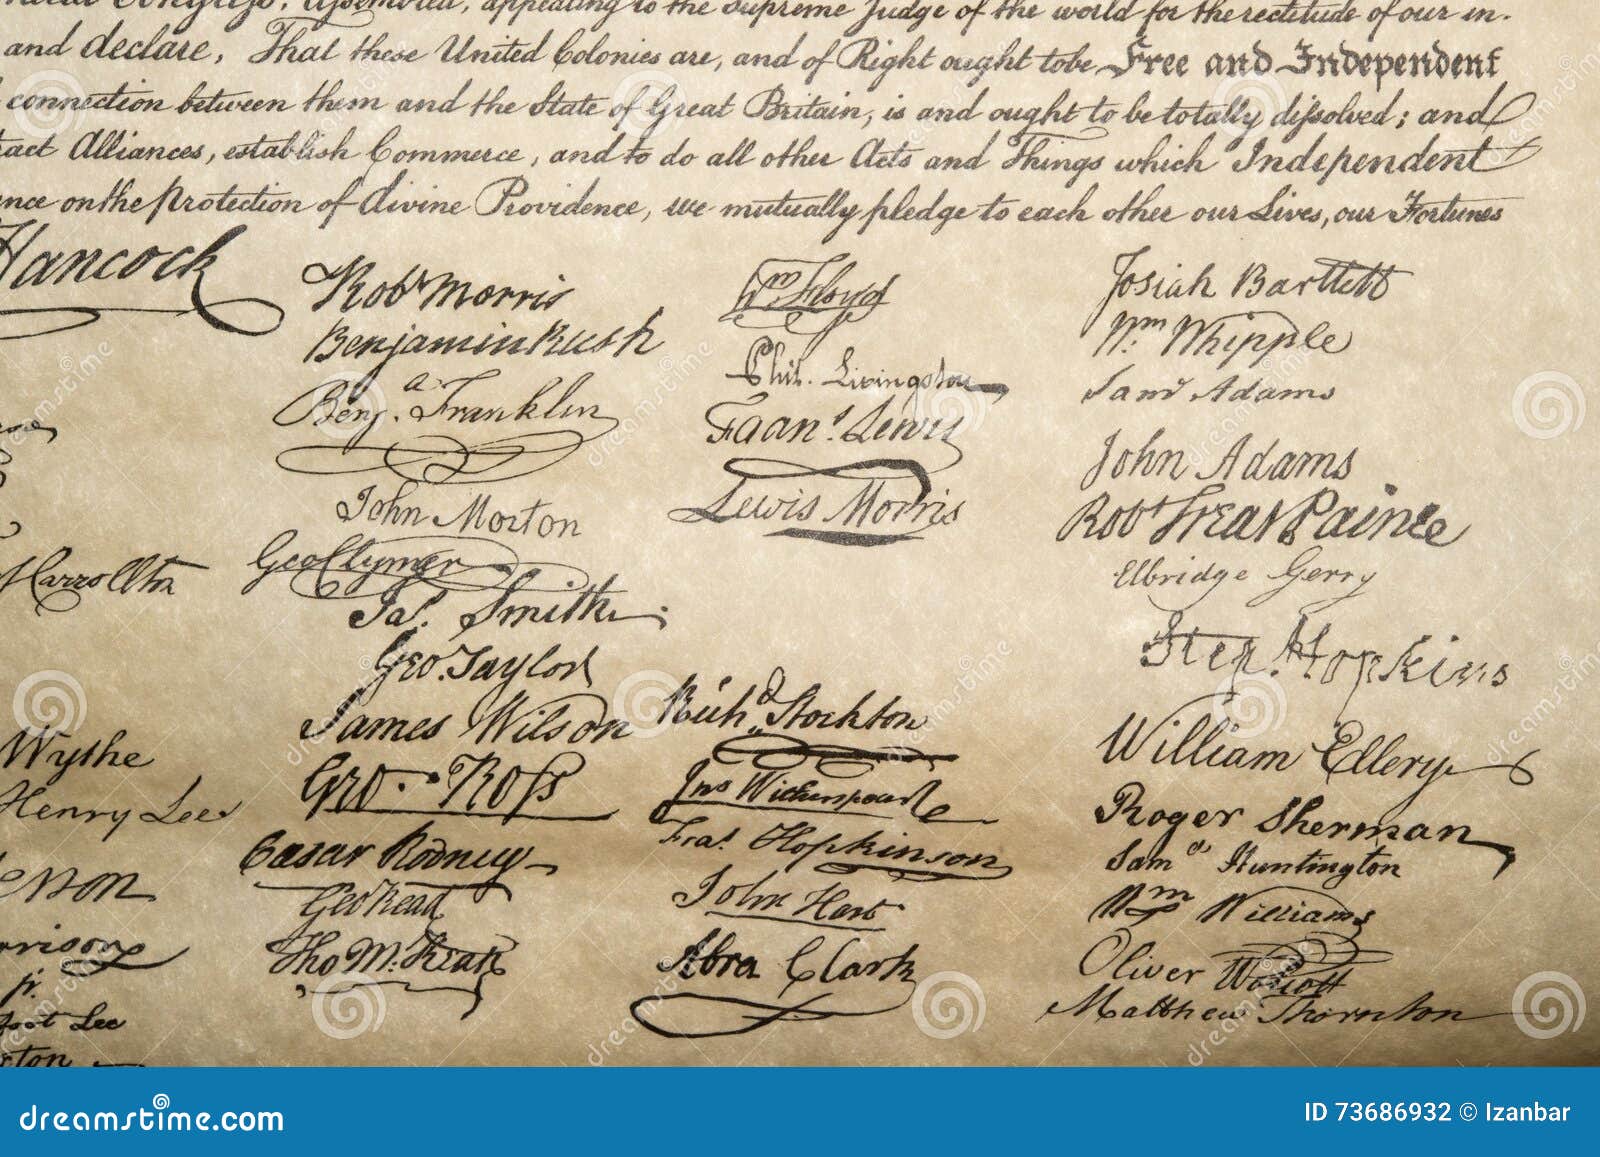 Congress, Assembled, appealing to the Supreme Judge of the world for the rectitude of our in-
and declare, That these United Colonies are, and of Right ought to be Free and Independent
connection between them and the State of Great Britain, is and ought to be totally dissolved; and
tract Alliances, establish Commerce, and to do all other Acts and Things which Independent
ence on the protection of divine Providence, we mutually pledge to each other our Lives, our Fortunes
Hancock
Robt Morris
Benjamin Rush
Benja. Franklin
John Morton
Geo Clymer
Jas. Smith
Geo. Taylor
James Wilson
Geo. Ross
Caesar Rodney
Geo Read
Tho M:Kean
Wm Floyd
Phil. Livingston
Frans. Lewis
Lewis Morris
Richd. Stockton
Jno Witherspoon
Fras. Hopkinson
John Hart
Abra Clark
Josiah Bartlett
Wm. Whipple
Saml Adams
John Adams
Robt Treat Paine
Elbridge Gerry
Step. Hopkins
William Ellery
Roger Sherman
Samel Huntington
Wm Williams
Oliver Wolcott
Matthew Thornton
Carrollton
Wythe
Henry Lee
erson
rrison
jr.
foot Lee
xton
dreamstime.com
ID 73686932 © Izanbar